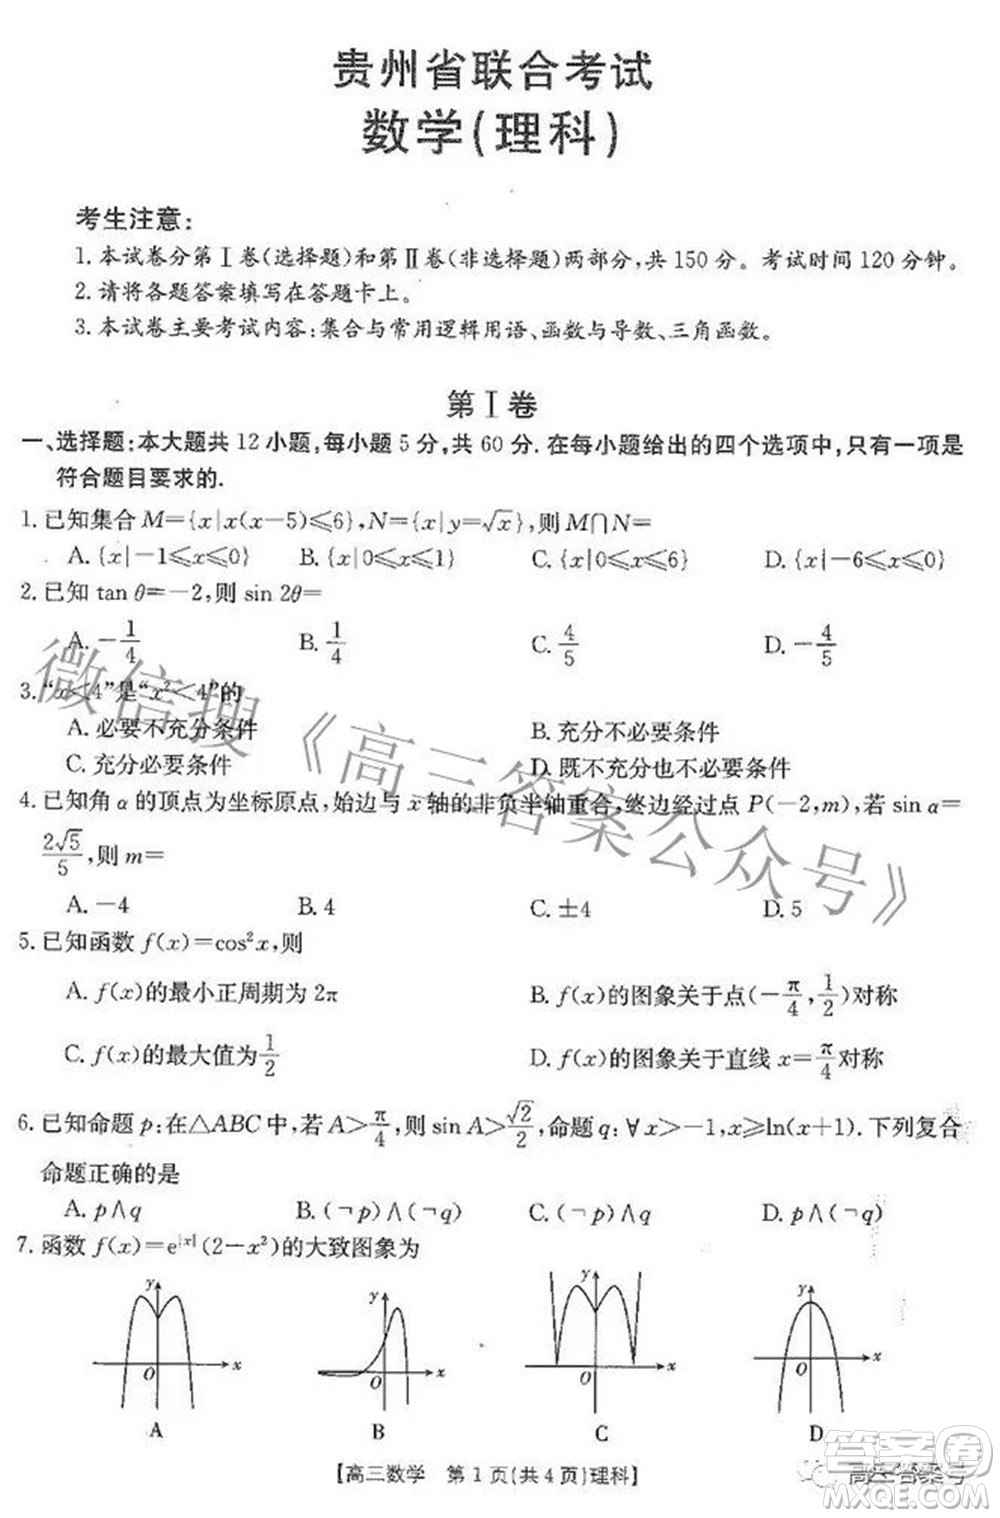 贵州省联合考试
数学(理科)
考生注意:
1. 本试卷分第Ⅰ卷(选择题)和第Ⅱ卷(非选择题)两部分,共150分。考试时间120分钟。
2. 请将各题答案填写在答题卡上。
3. 本试卷主要考试内容:集合与常用逻辑用语、函数与导数、三角函数。
第Ⅰ卷
一、选择题:本大题共12小题,每小题5分,共60分.在每小题给出的四个选项中,只有一项是
符合题目要求的.
1. 已知集合 M={x|x(x-5)≤6}, N={x|y=√x}, 则 M∩N=
A. {x|-1≤x≤0} B. {x|0≤x≤1} C. {x|0≤x≤6} D. {x|-6≤x≤0}
2. 已知 tan θ=-2, 则 sin 2θ=
A. -1/4 B. 1/4 C. 4/5 D. -4/5
3. “x<4”是“x²<4”的
A. 必要不充分条件 B. 充分不必要条件
C. 充分必要条件 D. 既不充分也不必要条件
4. 已知角 α 的顶点为坐标原点,始边与 x 轴的非负半轴重合,终边经过点 P(-2,m),若 sin α=
2√5/5, 则 m=
A. -4 B. 4 C. ±4 D. 5
5. 已知函数 f(x)=cos²x, 则
A. f(x)的最小正周期为 2π B. f(x)的图象关于点(-π/4, 1/2)对称
C. f(x)的最大值为 1/2 D. f(x)的图象关于直线 x=π/4 对称
6. 已知命题 p: 在△ABC 中,若 A>π/4, 则 sin A>√2/2, 命题 q: ∀x>-1, x≥ln(x+1). 下列复合
命题正确的是
A. p∧q B. (¬p)∧(¬q) C. (¬p)∧q D. p∧(¬q)
7. 函数 f(x)=e^|x|(2-x²)的大致图象为
y y y y
O x O x O x O x
A B C D
【高三数学 第1页(共4页)理科】
微信搜《高三答案公众号》
高三答案号
答案圈
MXQE.COM